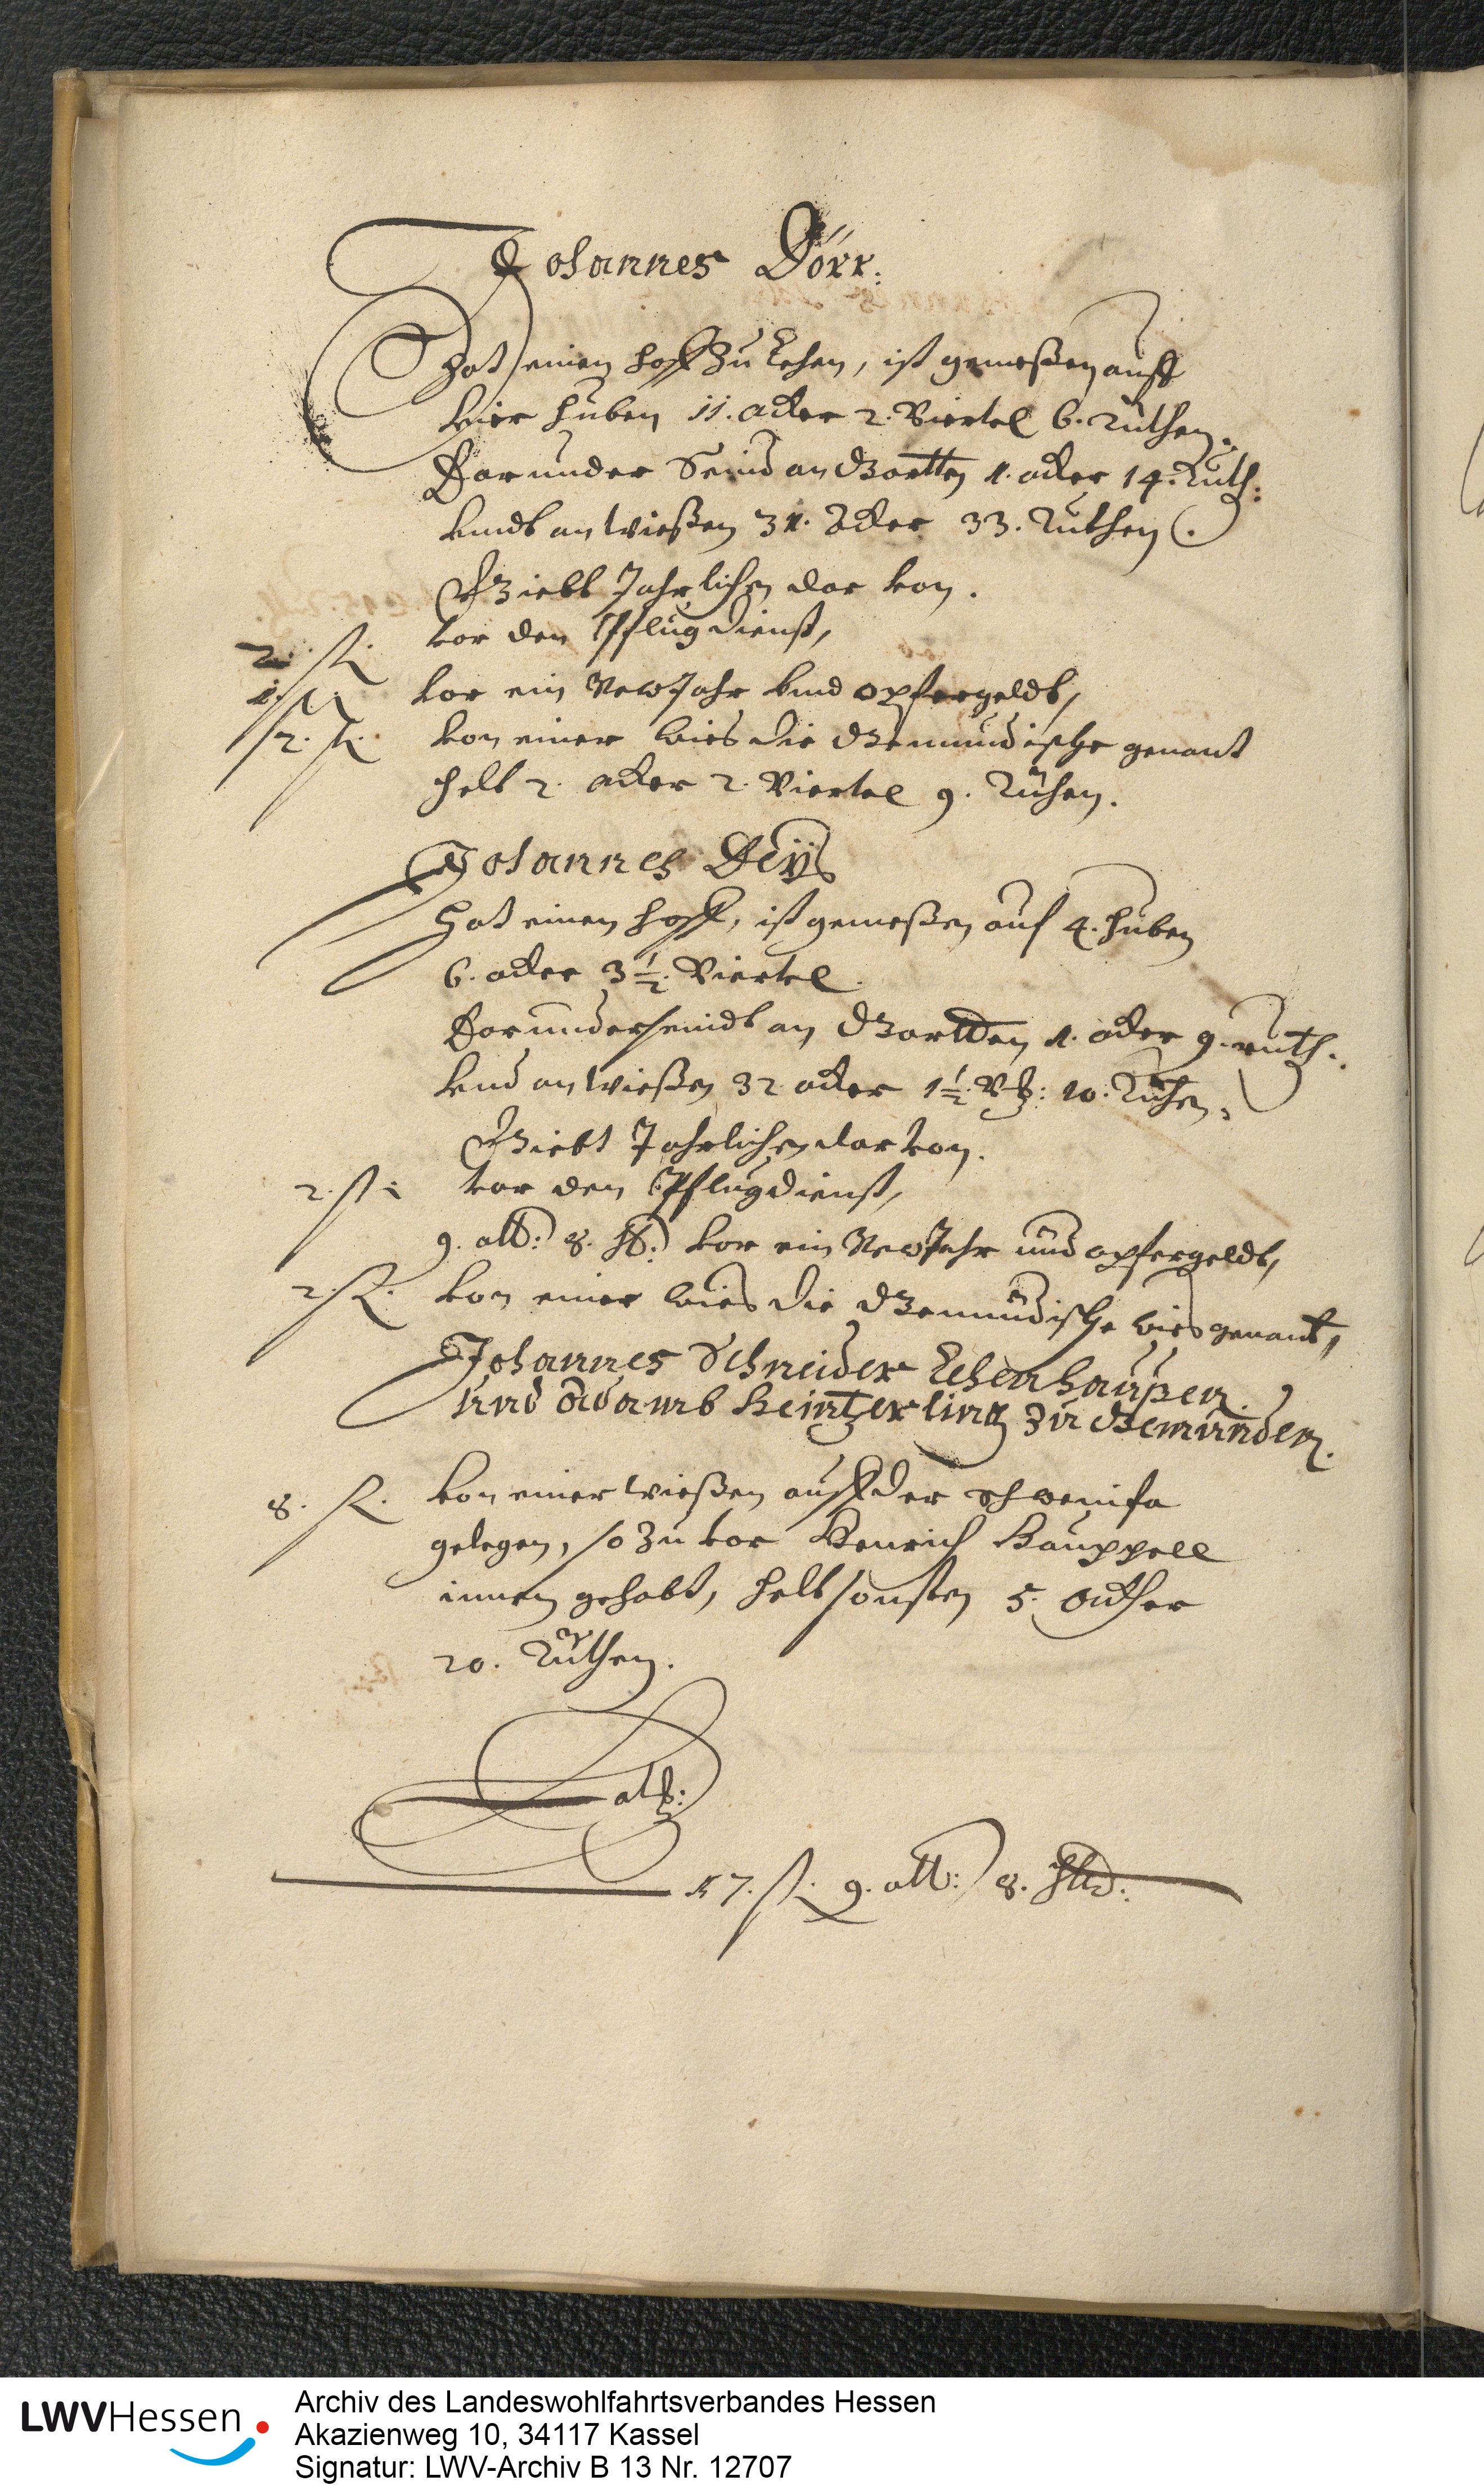 Johannes Dörr.
Hat einen hoff Zu Lehen, ist gemeßen auff
vier huben 11. acker 2. Viertel 6. ruthen.
Darunder Seind an Gartten 1. acker 14. Ruth:
vndt an wießen 31. Acker 33. Ruthen.
Giebt Jahrlichen dar von.
2. fl. vor den Pflugdienst,
1. fl. vor ein New Jahr vnd opfergeldt,
2. fl. von einer wies die Gemündische genant
helt 2. acker 2. Viertel 9. Ruthen.
Johannes Deÿs
Hat einen hoff, ist gemeßen auf 4. huben
6. acker 3 1/2. Viertel.
Darunder seindt an Gartten 1. acker 9. ruth.
vnd an wießen 32 acker 1 1/2. Vtl: 10. Ruthen.
Giebt Jahrlichen dar von.
2. fl: vor den Pflugdienst,
9. alb: 8. hl: vor ein New Jahr und opfergeldt,
2. fl. von einer wies die Gemündische wies genant,
Johannes Schneider Lehenhaußen
Unnd Adamb Heintzerling zu Gemünden.
8. fl. von einer wießen auff der Schweinfa
gelegen, so Zu vor Henrich Kauppell
innen gehabt, helt sonsten 5. Acker
20. Ruthen.
Latß:
17. fl. 9. alb: 8. hlld:
LWVHessen
Archiv des Landeswohlfahrtsverbandes Hessen
Akazienweg 10, 34117 Kassel
Signatur: LWV-Archiv B 13 Nr. 12707